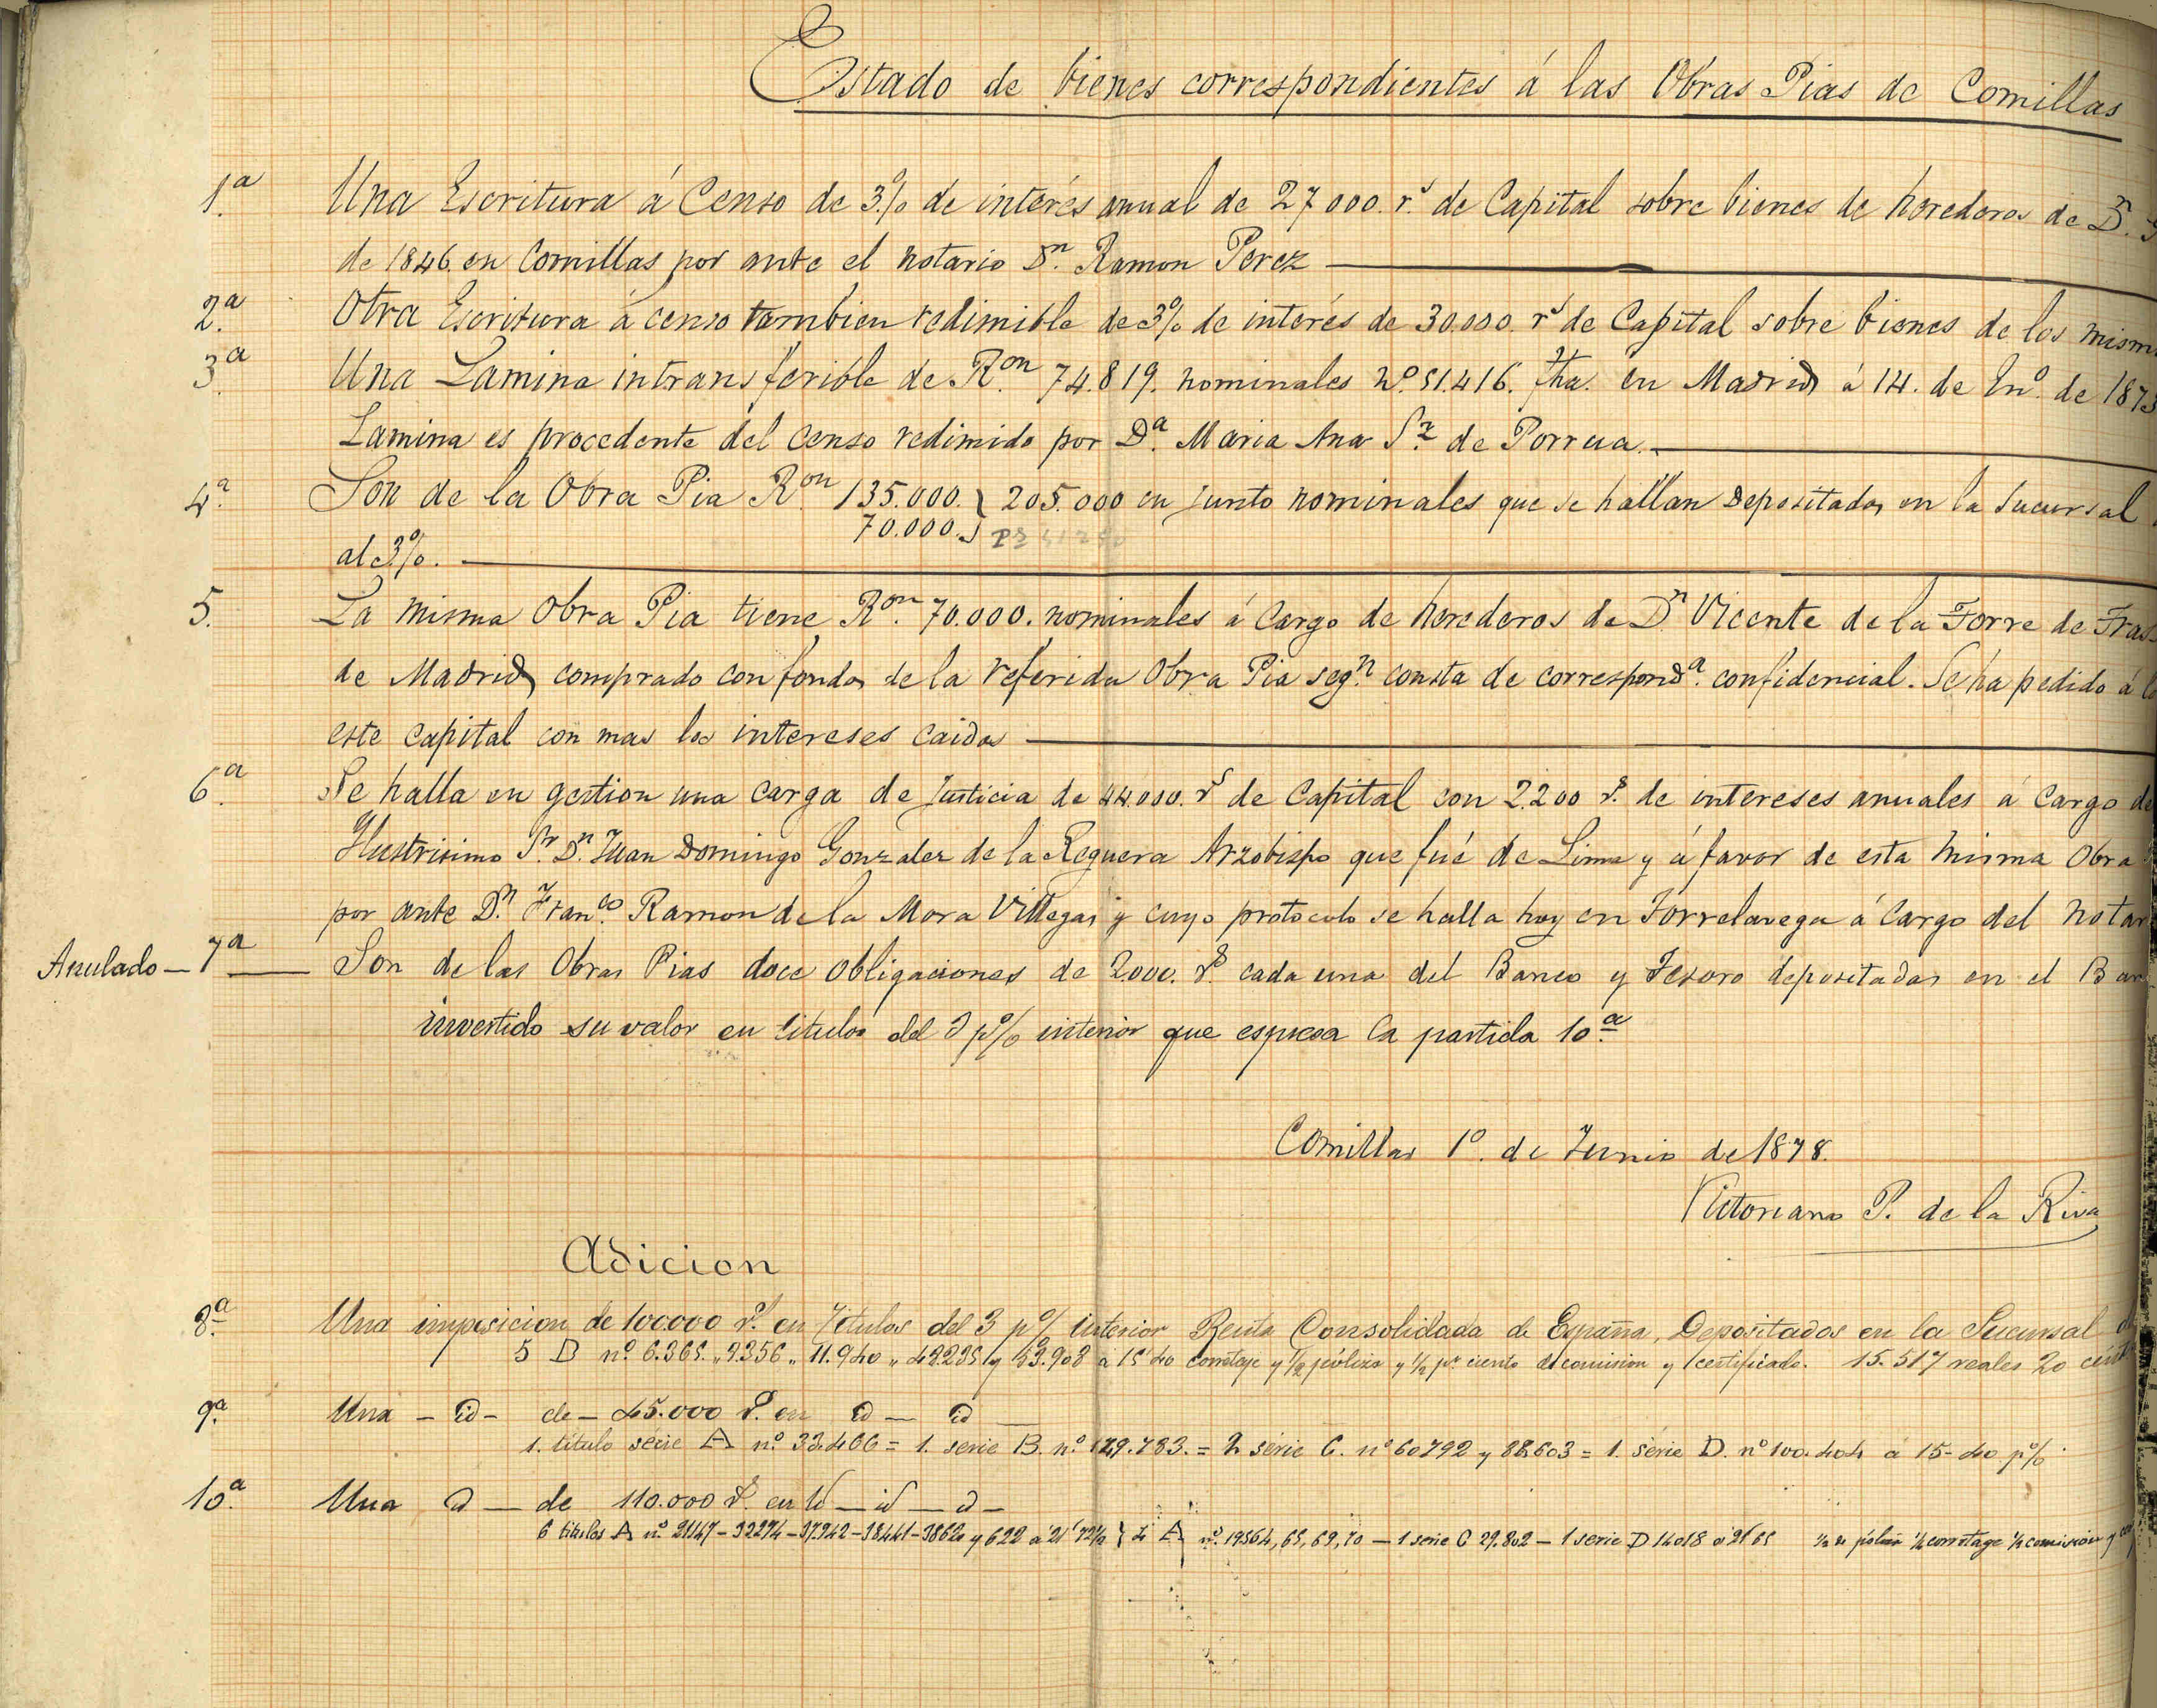 Estado de bienes correspondientes á las Obras Pias de Comillas
1.ª Una Escritura á Censo de 3% de interés anual de 27000. r.s de Capital sobre bienes de herederos de D.n
de 1846. en Comillas por ante el notario D.n Ramon Perez
2.ª Otra Escritura á censo tambien redimible de 3% de interés de 30.000. r.s de Capital sobre bienes de los mism
3.ª Una Lamina intransferible de R.on 74.819. nominales nº. 51.416. fha. en Madrid á 14. de En.º de 1873
Lamina es procedente del censo redimido por D.ª Maria Ana S.z de Porrua.
4.ª Son de la Obra Pia R.on 135.000. } 205.000 en junto nominales que se hallan Depositados en la Sucursal
70.000.
al 3%.
5. La misma Obra Pia tiene R.on 70.000. nominales á cargo de herederos de D.n Vicente de la Torre de Tras
de Madrid comprado con fondos de la referida Obra Pia seg.n consta de correspond.ª confidencial. Se ha pedido á
este capital con mas los intereses caidos
6.ª Se halla en gestion una carga de Justicia de 44.000. r.s de Capital con 2.200 r.s de intereses anuales á cargo de
Ilustrisimo S.r D.n Juan Domingo Gonzalez de la Reguera Arzobispo que fué de Lima y á favor de esta misma Obra
por ante D.n Fran.co Ramon de la Mora Villegas y cuyo protocolo se halla hoy en Torrelavega á cargo del notar
Anulado – 7ª Son de las Obras Pias doce obligaciones de 2.000. r.s cada una del Banco y Tesoro depositadas en el Ban
invertido su valor en titulos del 3 p% interior que espresa la partida 10.ª
Comillas 1º. de Junio de 1878.
Victoriano P. de la Riva
Adicion
8.ª Una imposicion de 100.000 r.s en Titulos del 3 p% interior Renta Consolidada de España, Depositados en la Sucursal
5 D nº. 6.365. „ 9.356 „ 11.940 „ 42.235 y 53.908 á 15'40 corretaje y 1/2 póliza y 1/2 p.r ciento de comision y certificado. 15.517 reales 20 cént
9.ª Una – id – de – 45.000 r.s en id — id
1. titulo serie A nº. 33.466 = 1. serie B. nº. 129.783. = 2 série C. nº 60792 y 88.603 = 1. série D. nº 100.404 á 15-40 p%
10.ª Una id — de 110.000 r.s en id — id — id –
6 titulos A nº. 21147 – 32274 – 37.942 – 38441 – 38620 y 622 á 21'72½ } 4 A nº. 19564, 65, 69, 70 — 1 serie C 29.802 – 1 serie D 14018 á 21'65 ½ de póliza ½ corretage ½ comisión y